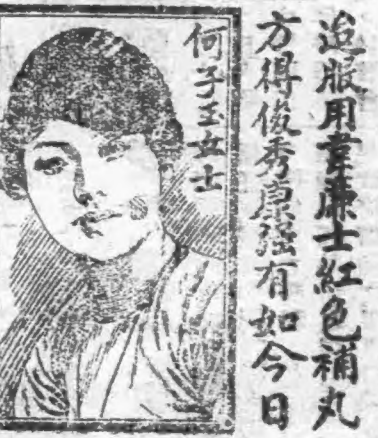 迨服用韋廉士紅色補丸
方得俊秀康强有如今日
何子玉女士